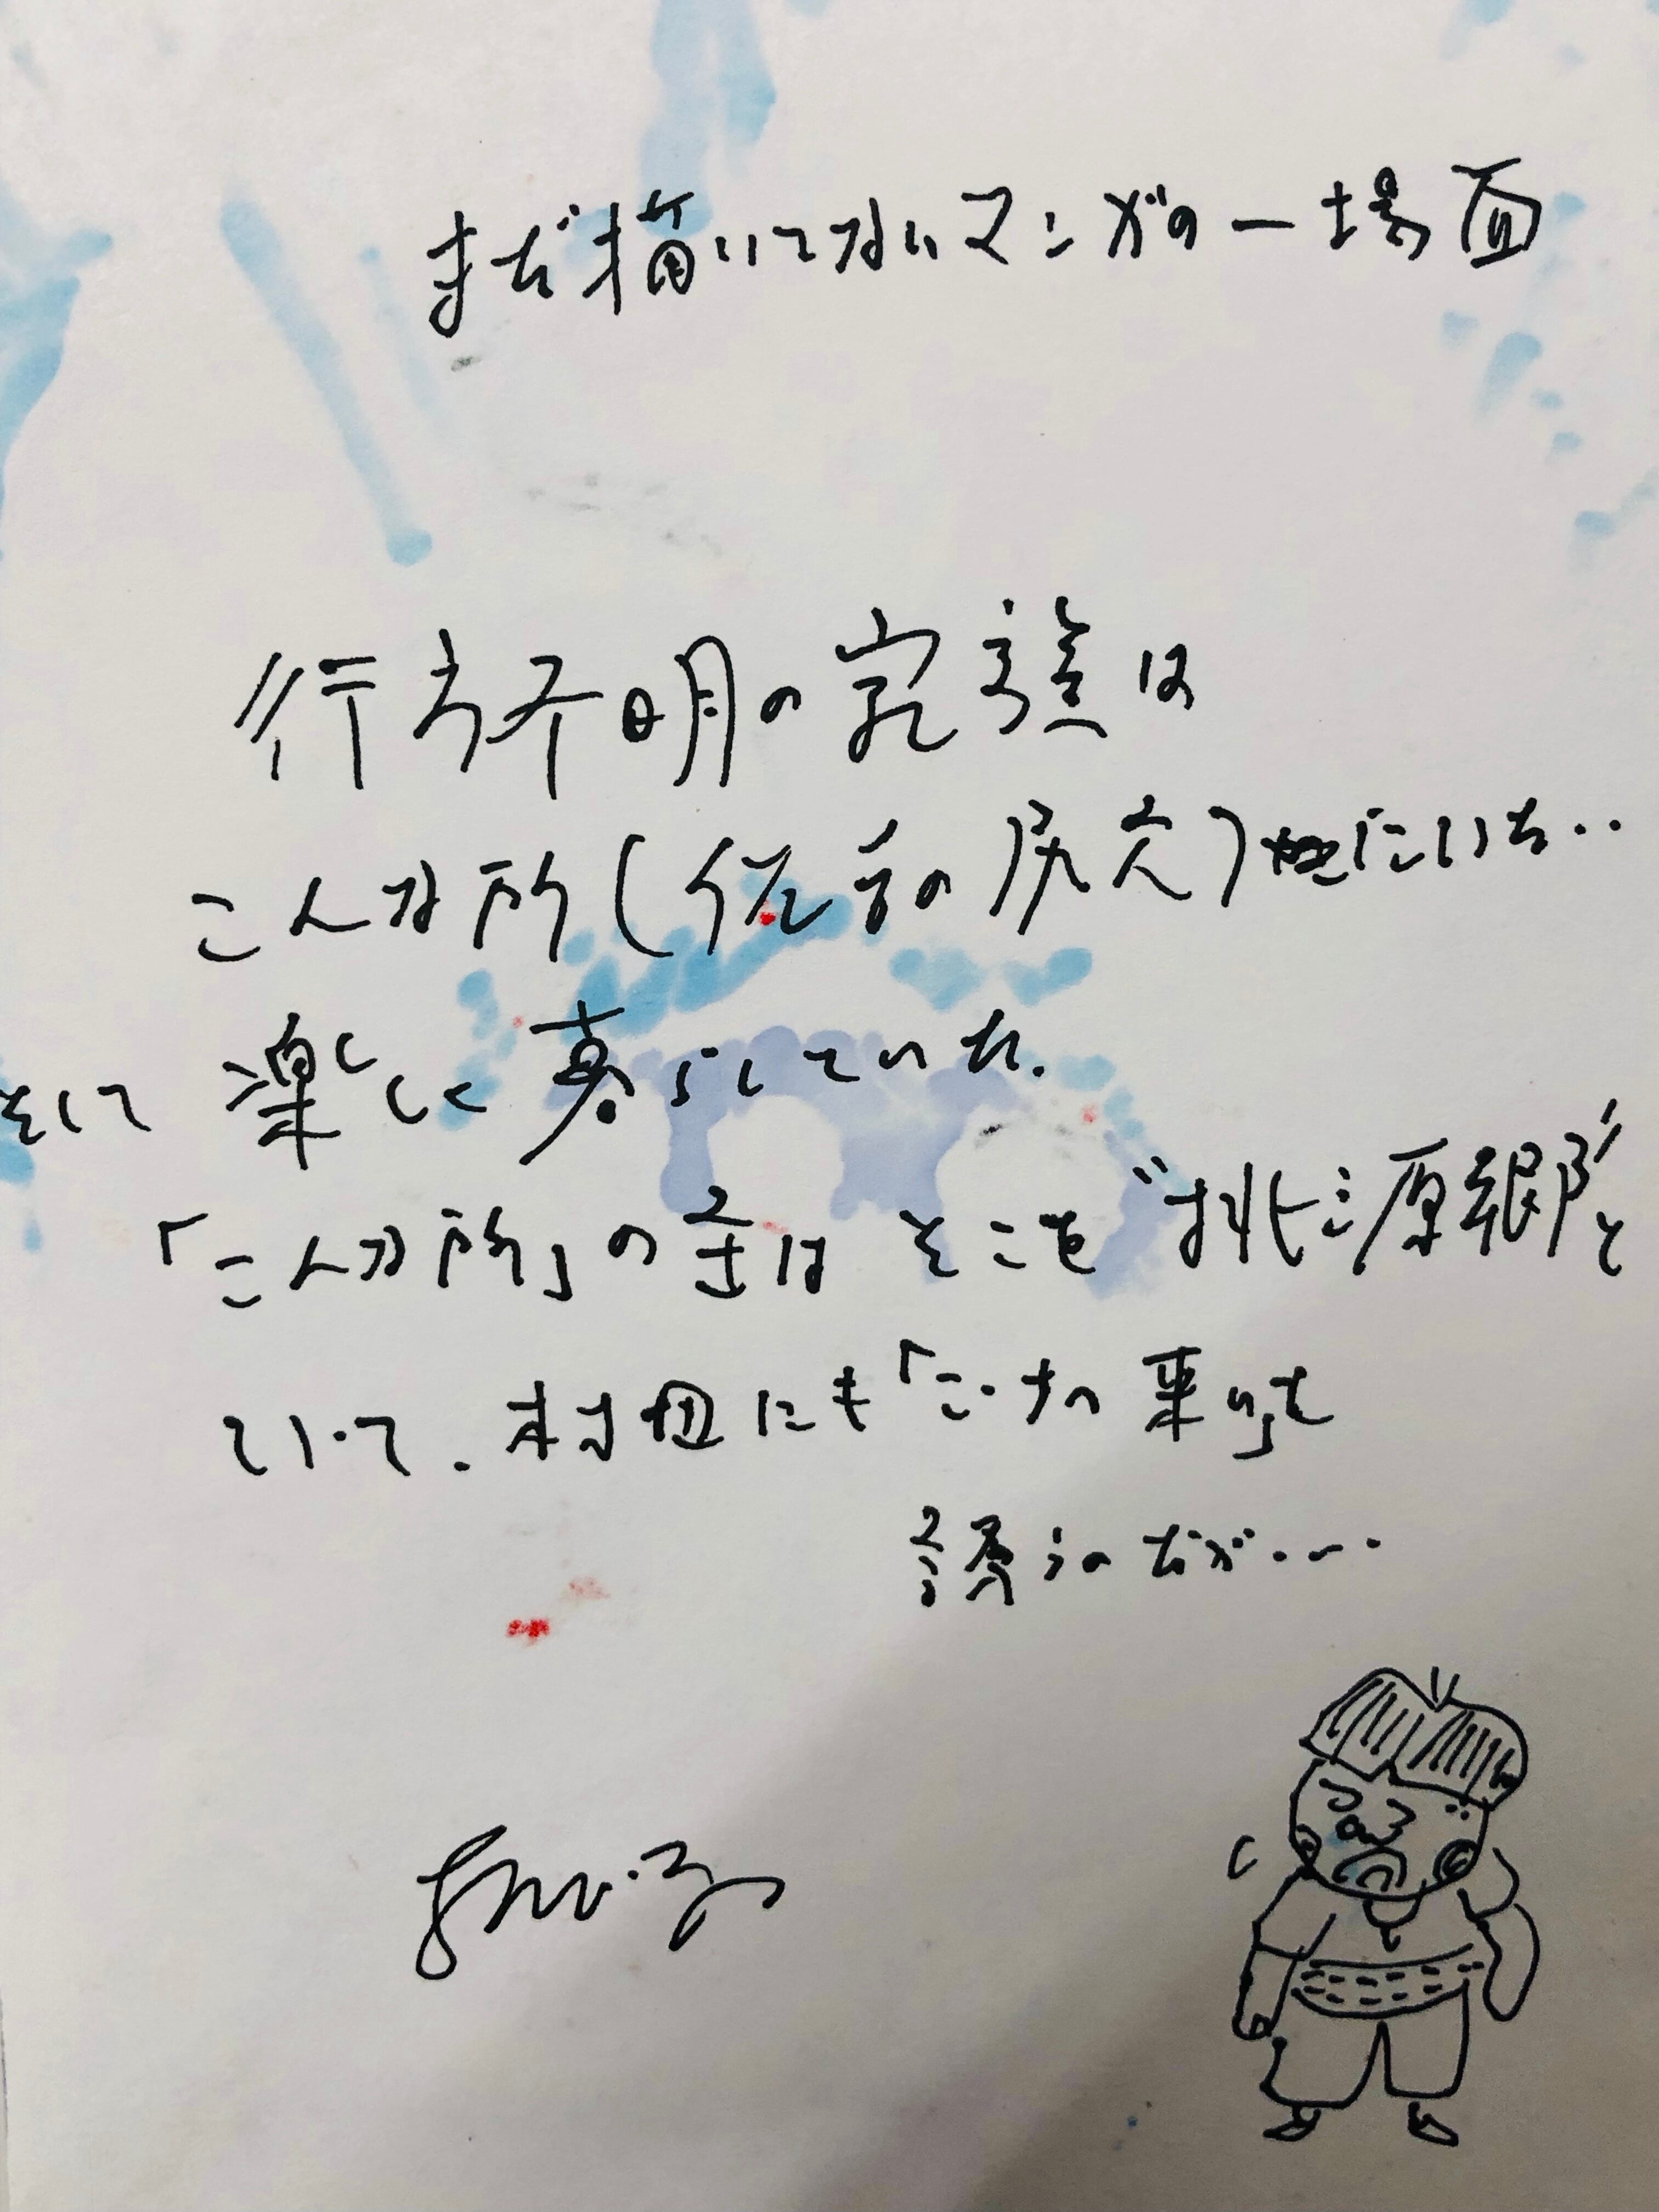 まだ描いてないマンガの一場面
行方不明の家族は
こんな所(仏手の尻穴)にいた‥
そして 楽しく暮らしていた.
「こんな所」の主は そこを"桃源郷"と
いって. 村田にも「こっちへ来い」と
誘うのだが・・・